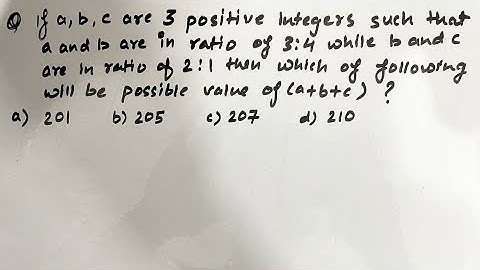 Q If a, b, c are 3 positive integers such that
a and b are in ratio of 3:4 while b and c
are in ratio of 2:1 then which of following
will be possible value of (a+b+c) ?
a) 201 b) 205 c) 207 d) 210